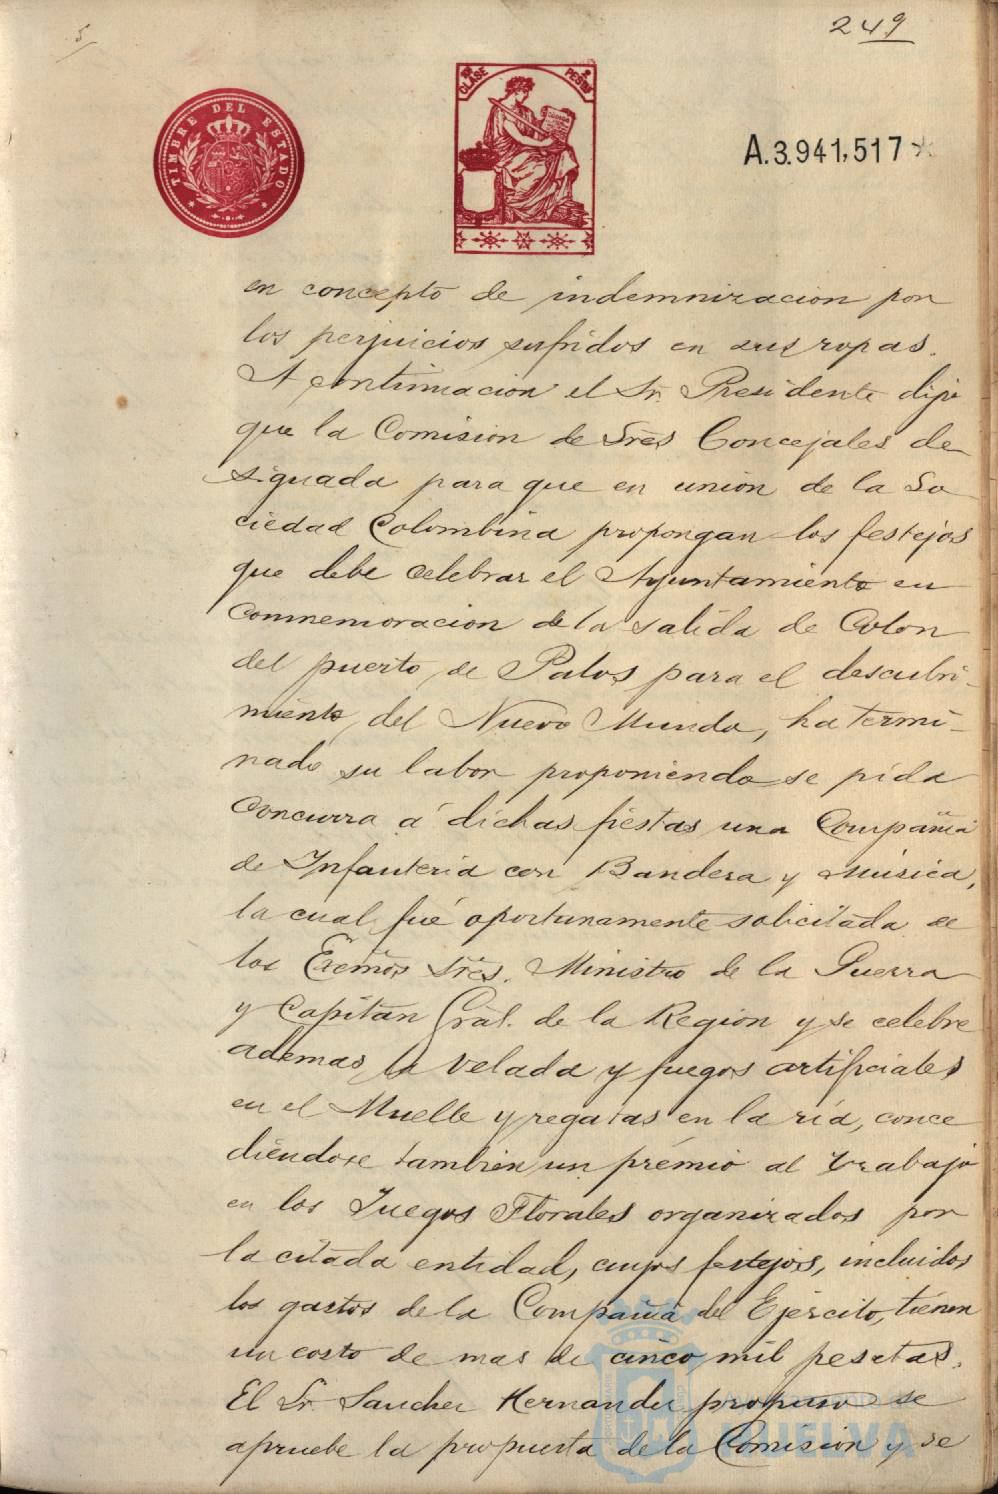 5
249
TIMBRE DEL ESTADO
CLASE
PESETAS
A.3.941,517*
en concepto de indemnizacion por
los perjuicios sufridos en sus ropas.
A continuacion el Sr. Presidente dijo
que la Comision de Sres Concejales de-
signada para que en union de la So
ciedad Colombina propongan los festejos
que debe celebrar el Ayuntamiento en
conmemoracion de la salida de Colon
del puerto de Palos para el descubri-
miento del Nuevo Mundo, ha termi-
nado su labor proponiendo se pida
concurra á dichas fiestas una Compañia
de Infanteria con Bandera y Música,
la cual fué oportunamente solicitada de
los Excmos Sres. Ministro de la Guerra
y Capitan Gral. de la Region y se celebre
ademas la velada y fuegos artificiales
en el Muelle y regatas en la ría, conce
diéndose tambien un premio al trabajo
en los Juegos Florales organizados por
la citada entidad, cuyos festejos, incluidos
los gastos de la Compañia del Ejército, tienen
un costo de mas de cinco mil pesetas.
El Sr. Sanchez Hernandez propuso se
apruebe la propuesta de la Comision y se
Ayuntamiento de
HUELVA